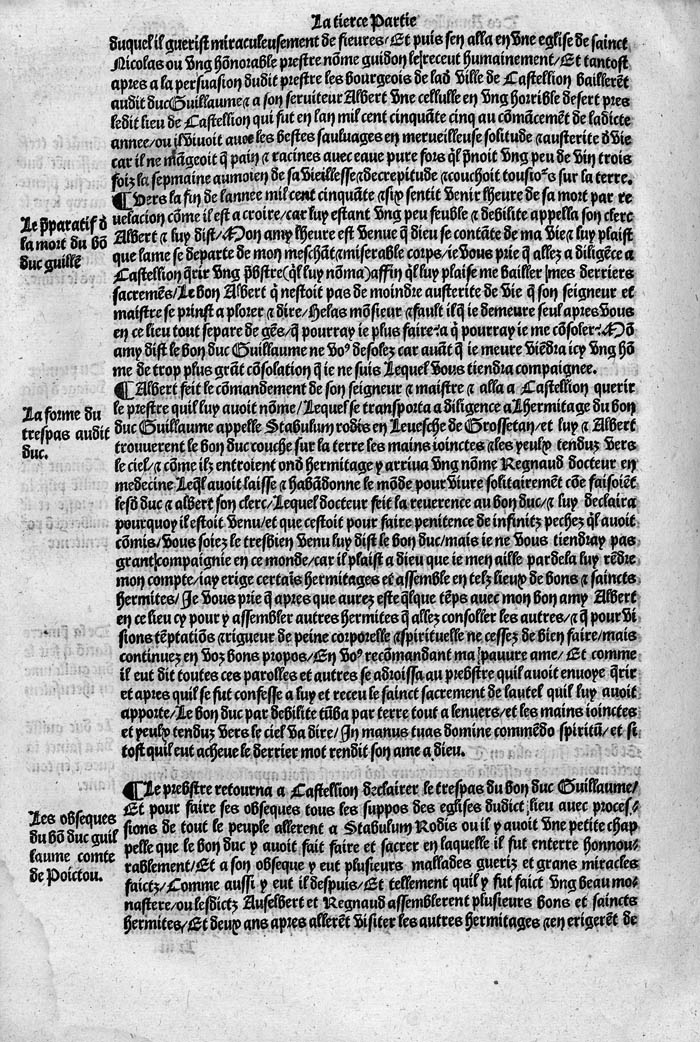 La tierce Partie
duquel il guerist miraculeusement de fieures/Et puis sen alla en vne eglise de sainct
Nicolas ou vng hõnorable prestre nõme guidon le recent humainement/Et tantost
apres a la persuasion dudit prestre les bourgeois de lad ville de Castellion baillerẽt
audit duc Guillaume ⁊ a son seruiteur Albert vne cellulle en vng horrible desert pres
ledit lieu de Castellion qui fut en lan mil cent cinquãte cinq au cõmãcemẽt de ladicte
annee/ou il viuoit auec les bestes sauluages en merueilleuse solitude ⁊ austerite d̃ vie
car il ne mãgeoit q̃ pain ⁊ racines auec eaue pure fors q̃l p̃noit vng peu de vin trois
foiz la sepmaine au moien de sa vieillesse ⁊ decrepitude ⁊ couchoit tousioᷣs sur la terre.
Le p̃paratif d̃
la mort du bõ
duc guillẽ
¶ Vers la fin de lannee mil cent cinquãte ⁊ six sentit venir lheure de sa mort par re
uelacion cõme il est a croire/car luy estant vng peu feuble ⁊ debilite appella son clerc
Albert ⁊ luy dist/Mon amy lheure est venue q̃ dieu se contãte de ma vie ⁊ luy plaist
que lame se departe de mon meschãt ⁊ miserable corps/ie vous prie q̃ allez a diligẽce a
Castellion q̃rir vng p̃bstre (q̃l luy nõma) affin q̃l luy plaise me bailler mes derriers
sacremẽs/Le bon Albert q̃ nestoit pas de moindre austerite de vie q̃ son seigneur et
maistre se prinst a plorer ⁊ dire/Helas mõsieur ⁊ fault il q̃ ie demeure seul apres vous
en ce lieu tout separe de gẽs/q̃ pourray ie plus faire: a q̃ pourray ie me cõsoler: Mõ
amy dist le bon duc Guillaume ne voꝰ desolez car auãt q̃ ie meure viẽdra icy vng hõ
me de trop plus grãt cõsolation q̃ ie ne suis Lequel vous tiendra compaignee.
La forme du
trespas audit
duc.
¶ Albert feit le cõmandement de son seigneur ⁊ maistre ⁊ alla a Castellion querir
le prestre quil luy auoit nõme/Lequel se transporta a diligence a Lhermitage du bon
duc Guillaume appelle Stabulum rodis en Leuesche de Grossetan/et luy ⁊ Albert
trouuerent le bon duc couche sur la terre les mains ioinctes ⁊ les yeulx tenduz vers
le ciel/⁊ cõme ilz entroient ond̃ hermitage y arriua vng nõme Regnaud docteur en
medecine Leq̃l auoit laisse ⁊ habãdonne le mõde pour viure solitairemẽt cõe faisoiẽt
lesd̃ duc ⁊ albert son clerc/Lequel docteur feit la reuerence au bon duc/⁊ luy declaira
pourquoy il estoit venu/et que cestoit pour faire penitence de infinitz pechez q̃l auoit
cõmis/vous soiez le tresbien venu luy dist le bon duc/mais ie ne vous tiendray pas
grant compaignie en ce monde/car il plaist a dieu que ie men aille par dela luy rẽdre
mon compte/iay erige certaĩs hermitages et assemble en telz lieux de bons ⁊ saincts
hermites/Je vous prie q̃ apres que aurez este q̃lque tẽps auec mon bon amy Albert
en ce lieu cy pour y assembler autres hermites q̃ allez consoller les autres/⁊ q̃ pour vi
sions tẽptatiõs ⁊ rigueur de peine corporelle ⁊ spirituelle ne cessez de bien faire/mais
continuez en voz bons propos/En voꝰ recõmandant ma pauure ame/ Et comme
il eut dit toutes ces parolles et autres se adroissa au prebstre quil auoit enuoye q̃rir
et apres quil se fut confesse a luy et receu le sainct sacrement de lautel quil luy auoit
apporte/Le bon duc par debilite tũba par terre tout a lenuers/et les mains ioinctes
et yeulx tenduz vers le ciel va dire/In manus tuas domine commẽdo spiritũ/ et si
tost quil eut acheue le derrier mot rendit son ame a dieu.
Les obseques
du bõ duc guil
laume comte
de Poictou.
¶ Le prebstre retourna a Castellion declairer le trespas du bon duc Guillaume/
Et pour faire ses obseques tous les suppos des eglises dudict lieu auec proces/
sions de tout le peuple allerent a Stabulum Rodis ou il y auoit vne petite chap
pelle que le bon duc y auoit fait faire et sacrer en laquelle il fut enterre honnou/
rablement/Et a son obseque y eut plusieurs mallades gueriz et grans miracles
faictz/Comme aussi y eut il despuis/Et tellement quil y fut faict vng beau mo/
nastere/ou lesdictz Auselbert et Regnaud assemblerent plusieurs bons et saincts
hermites/Et deux ans apres allerẽt visiter les autres hermitages ⁊ en erigerẽt de